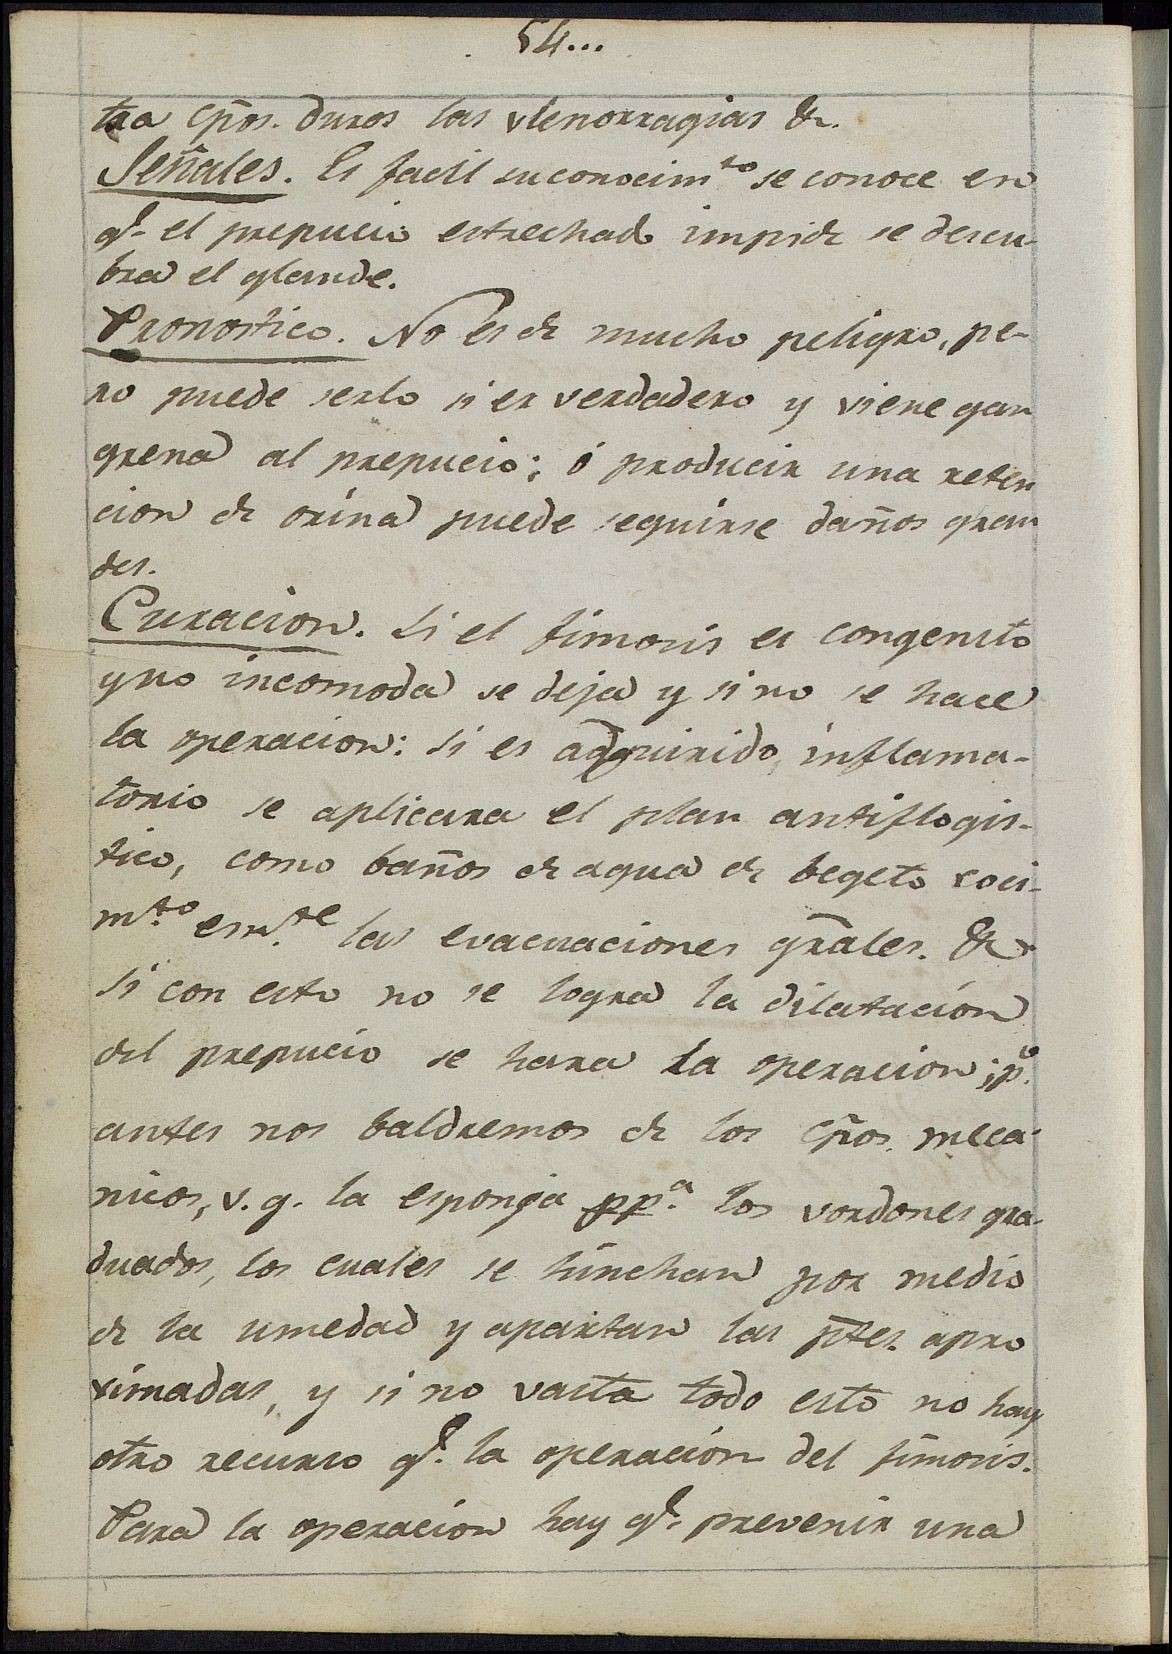 54...
tra cp̃os. duros las vlenorragias &.
Señales. Es facil su conocim.to se conoce en
q.e el prepucio estrechado impide se descu-
bra el glande.
Pronostico. No es de mucho peligro, pe-
ro puede serlo si es verdadero y viene gan
grena al prepucio; ó producir una reten
cion de orina puede seguirse daños gran
des.
Curacion. Si el fimosis es congenito
y no incomoda se deja y si no se hace
la operacion: si es adquirido, inflama-
torio se aplicara el plan antiflogis-
tico, como baños de agua de begeto coci-
m.to em.te las evacuaciones grãles. &
si con esto no se logra la dilatacion
del prepucio se hara la operacion; p.o
antes nos baldremos de los cp̃os. meca-
nicos, v. g. la esponja pp.a los vordones gra-
duados, los cuales se hinchan por medio
de la umedad y apartan las p̃tes. apro
ximadas, y si no vasta todo esto no hay
otro recurso q.e la operacion del fimosis.
Para la operacion hay q.e prevenir una